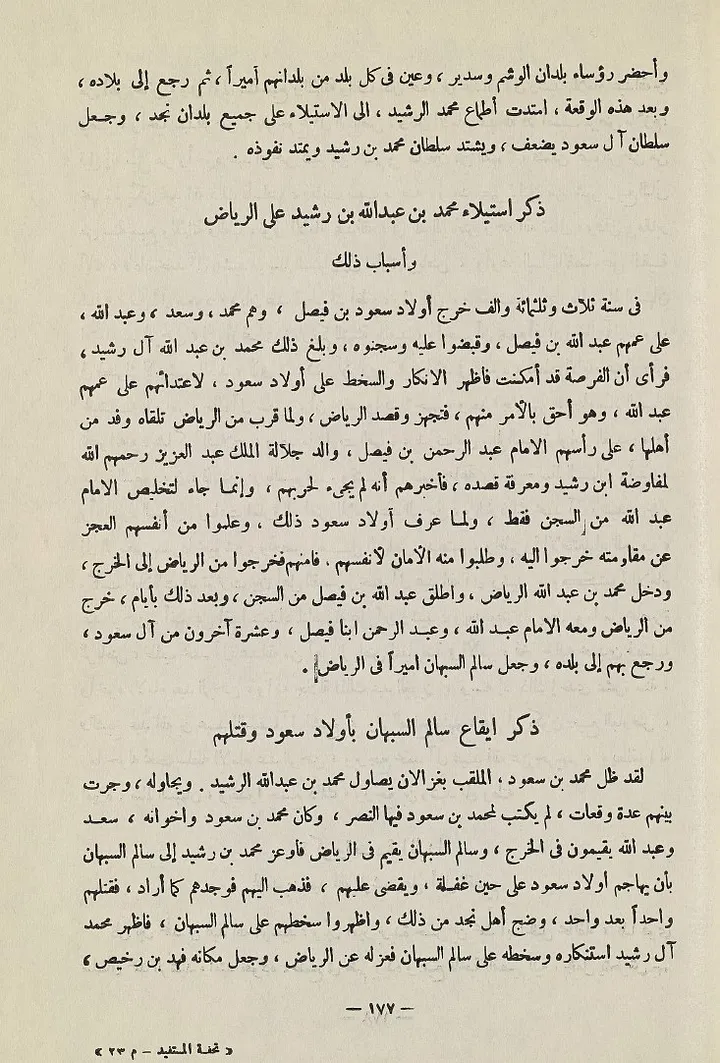 وأحضر رؤساء بلدان الوشم وسدير ، وعين فى كل بلد من بلدانهم أميراً ، ثم رجع إلى بلاده ،
وبعد هذه الوقعة ، امتدت أطماع محمد الرشيد ، الى الاستيلاء على جميع بلدان نجد ، وجعل
سلطان آل سعود يضعف ، ويشتد سلطان محمد بن رشيد ويمتد نفوذه .
ذكر استيلاء محمد بن عبدالله بن رشيد على الرياض
وأسباب ذلك
فى سنة ثلاث وثلثمائة والف خرج أولاد سعود بن فيصل ، وهم محمد ، وسعد ، وعبد الله ،
على عمهم عبد الله بن فيصل ، وقبضوا عليه وسجنوه ، وبلغ ذلك محمد بن عبد الله آل رشيد ,
فرأى أن الفرصة قد أمكنت فاظهر الانكار والسخط على أولاد سعود ، لاعتدائهم على عمهم
عبد الله ، وهو أحق بالأمر منهم ، فتجهز وقصد الرياض ، ولما قرب من الرياض تلقاه وفد من
أهلها ، على رأسهم الامام عبد الرحمن بن فيصل ، والد جلالة الملك عبد العزيز رحمهم الله
لمفاوضة ابن رشيد ومعرفة قصده ، فأخبرهم أنه لم يجىء لحربهم ، وإنما جاء لتخليص الامام
عبد الله من السجن فقط ، ولما عرف أولاد سعود ذلك ، وعلموا من أنفسهم العجز
عن مقاومته خرجوا اليه ، وطلبوا منه الأمان لأنفسهم . فامنهم فخرجوا من الرياض إلى الخرج ،
ودخل محمد بن عبد الله الرياض ، واطلق عبد الله بن فيصل من السجن ، وبعد ذلك بأيام ، خرج
من الرياض ومعه الامام عبد الله ، وعبد الرحمن ابنا فيصل ، وعشرة آخرون من آل سعود ،
ورجع بهم إلى بلده ، وجعل سالم السبهان اميراً فى الرياض .
ذكر ايقاع سالم السبهان بأولاد سعود وقتلهم
لقد ظل محمد بن سعود ، الملقب بغزالان يصاول محمد بن عبدالله الرشيد . ويحاوله ، وجرت
بينهم عدة وقعات ، لم يكتب لمحمد بن سعود فيها النصر ، وكان محمد بن سعود واخوانه ، سعد
وعبد الله يقيمون فى الخرج ، وسالم السبهان يقيم فى الرياض فأوعز محمد بن رشيد إلى سالم السبهان
بأن يهاجم أولاد سعود على حين غفلة ، ويقضى عليهم ، فذهب اليهم فوجدهم كما أراد ، فقتلهم
واحداً بعد واحد ، وضج أهل نجد من ذلك ، واظهروا سخطهم على سالم السبهان ، فاظهر محمد
آل رشيد استنكاره وسخطه على سالم السبهان فعزله عن الرياض ، وجعل مكانه فهد بن رخيص ،
— ١٧٧ —
« تحفة المستفيد - م ٢٣ »